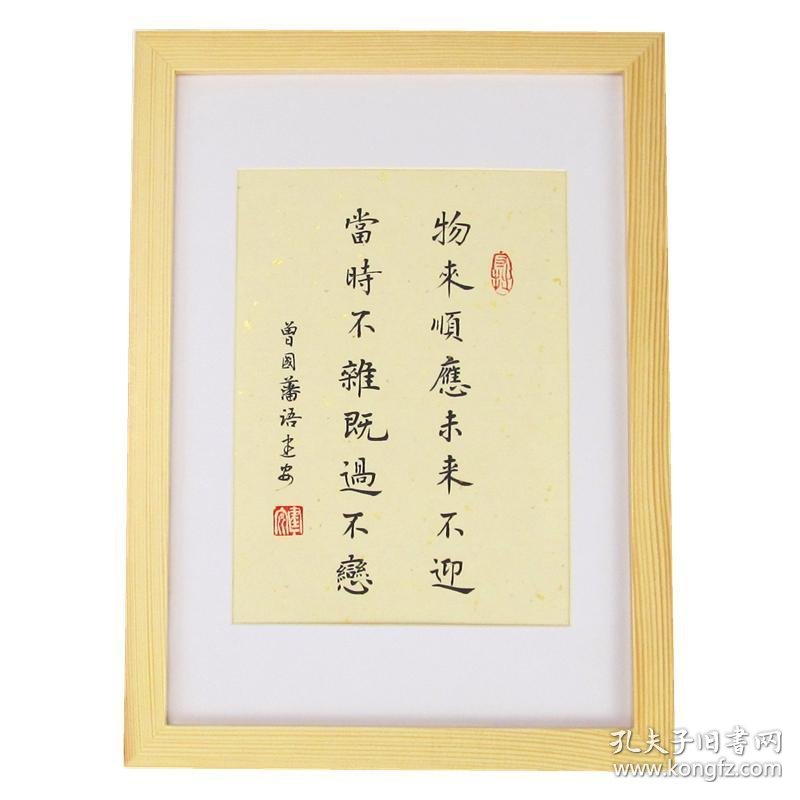 物來順應未来不迎
當時不雜既過不戀
曾國藩语建安
孔夫子旧书网
www.kongfz.com